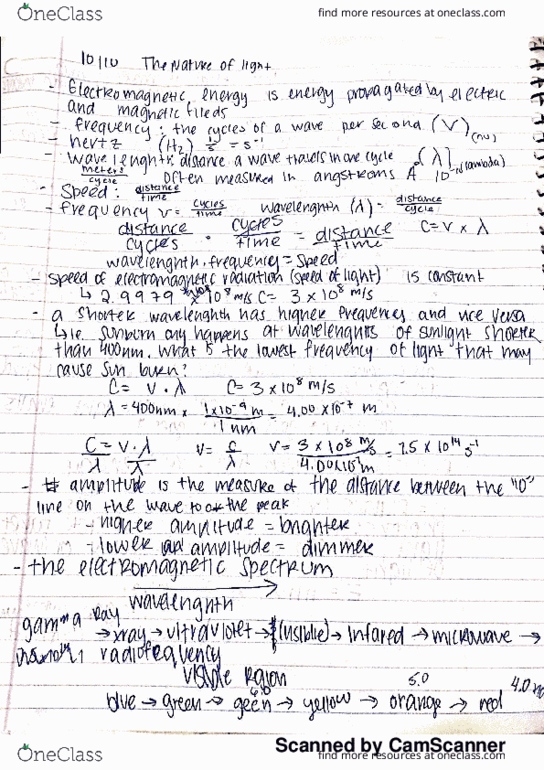 OneClass
find more resources at oneclass.com
10/10 The Nature of light
- Electromagnetic energy is energy propagated by electric
and magnetic fileds
- frequency: the cycles of a wave per second (V) (nu)
- hertz (Hz) 1/s = s⁻¹
- wavelength: distance a wave travels in one cycle (λ) (lambda)
meters/cycle often measured in angstroms A
- Speed: distance/time
- frequency V = cycles/time wavelength (λ) = distance/cycle
distance/cycles · cycles/time = distance/time C = V x λ
wavelength, frequency = speed
- speed of electromagnetic radiation (speed of light) is constant
↳ 2.9979 x 10⁸ m/s C = 3 x 10⁸ m/s
- a shorter wavelength has higher frequency and vice versa
↳ i.e. sunburn only happens at wavelengths of sunlight shorter
than 400nm. What is the lowest frequency of light that may
cause sun burn?
C = V · λ C = 3 x 10⁸ m/s
λ = 400nm x 1x10⁻⁹ m / 1 nm = 4.00 x 10⁻⁷ m
C/λ = V·λ/λ V = C/λ V = 3 x 10⁸ m/s / 4.00x10⁻⁷ m = 7.5 x 10¹⁴ s⁻¹
- amplitude is the measure of the distance between the "0"
line on the wave to the peak
- higher amplitude = brighter
- lower amplitude = dimmer
- the electromagnetic spectrum
wavelength
gamma ray → xray → ultraviolet → (visible) → infared → microwave →
radiofrequency
visible region
5.0 4.0
6.0
blue → green → geen → yellow → orange → red
Scanned by CamScanner
OneClass
find more resources at oneclass.com